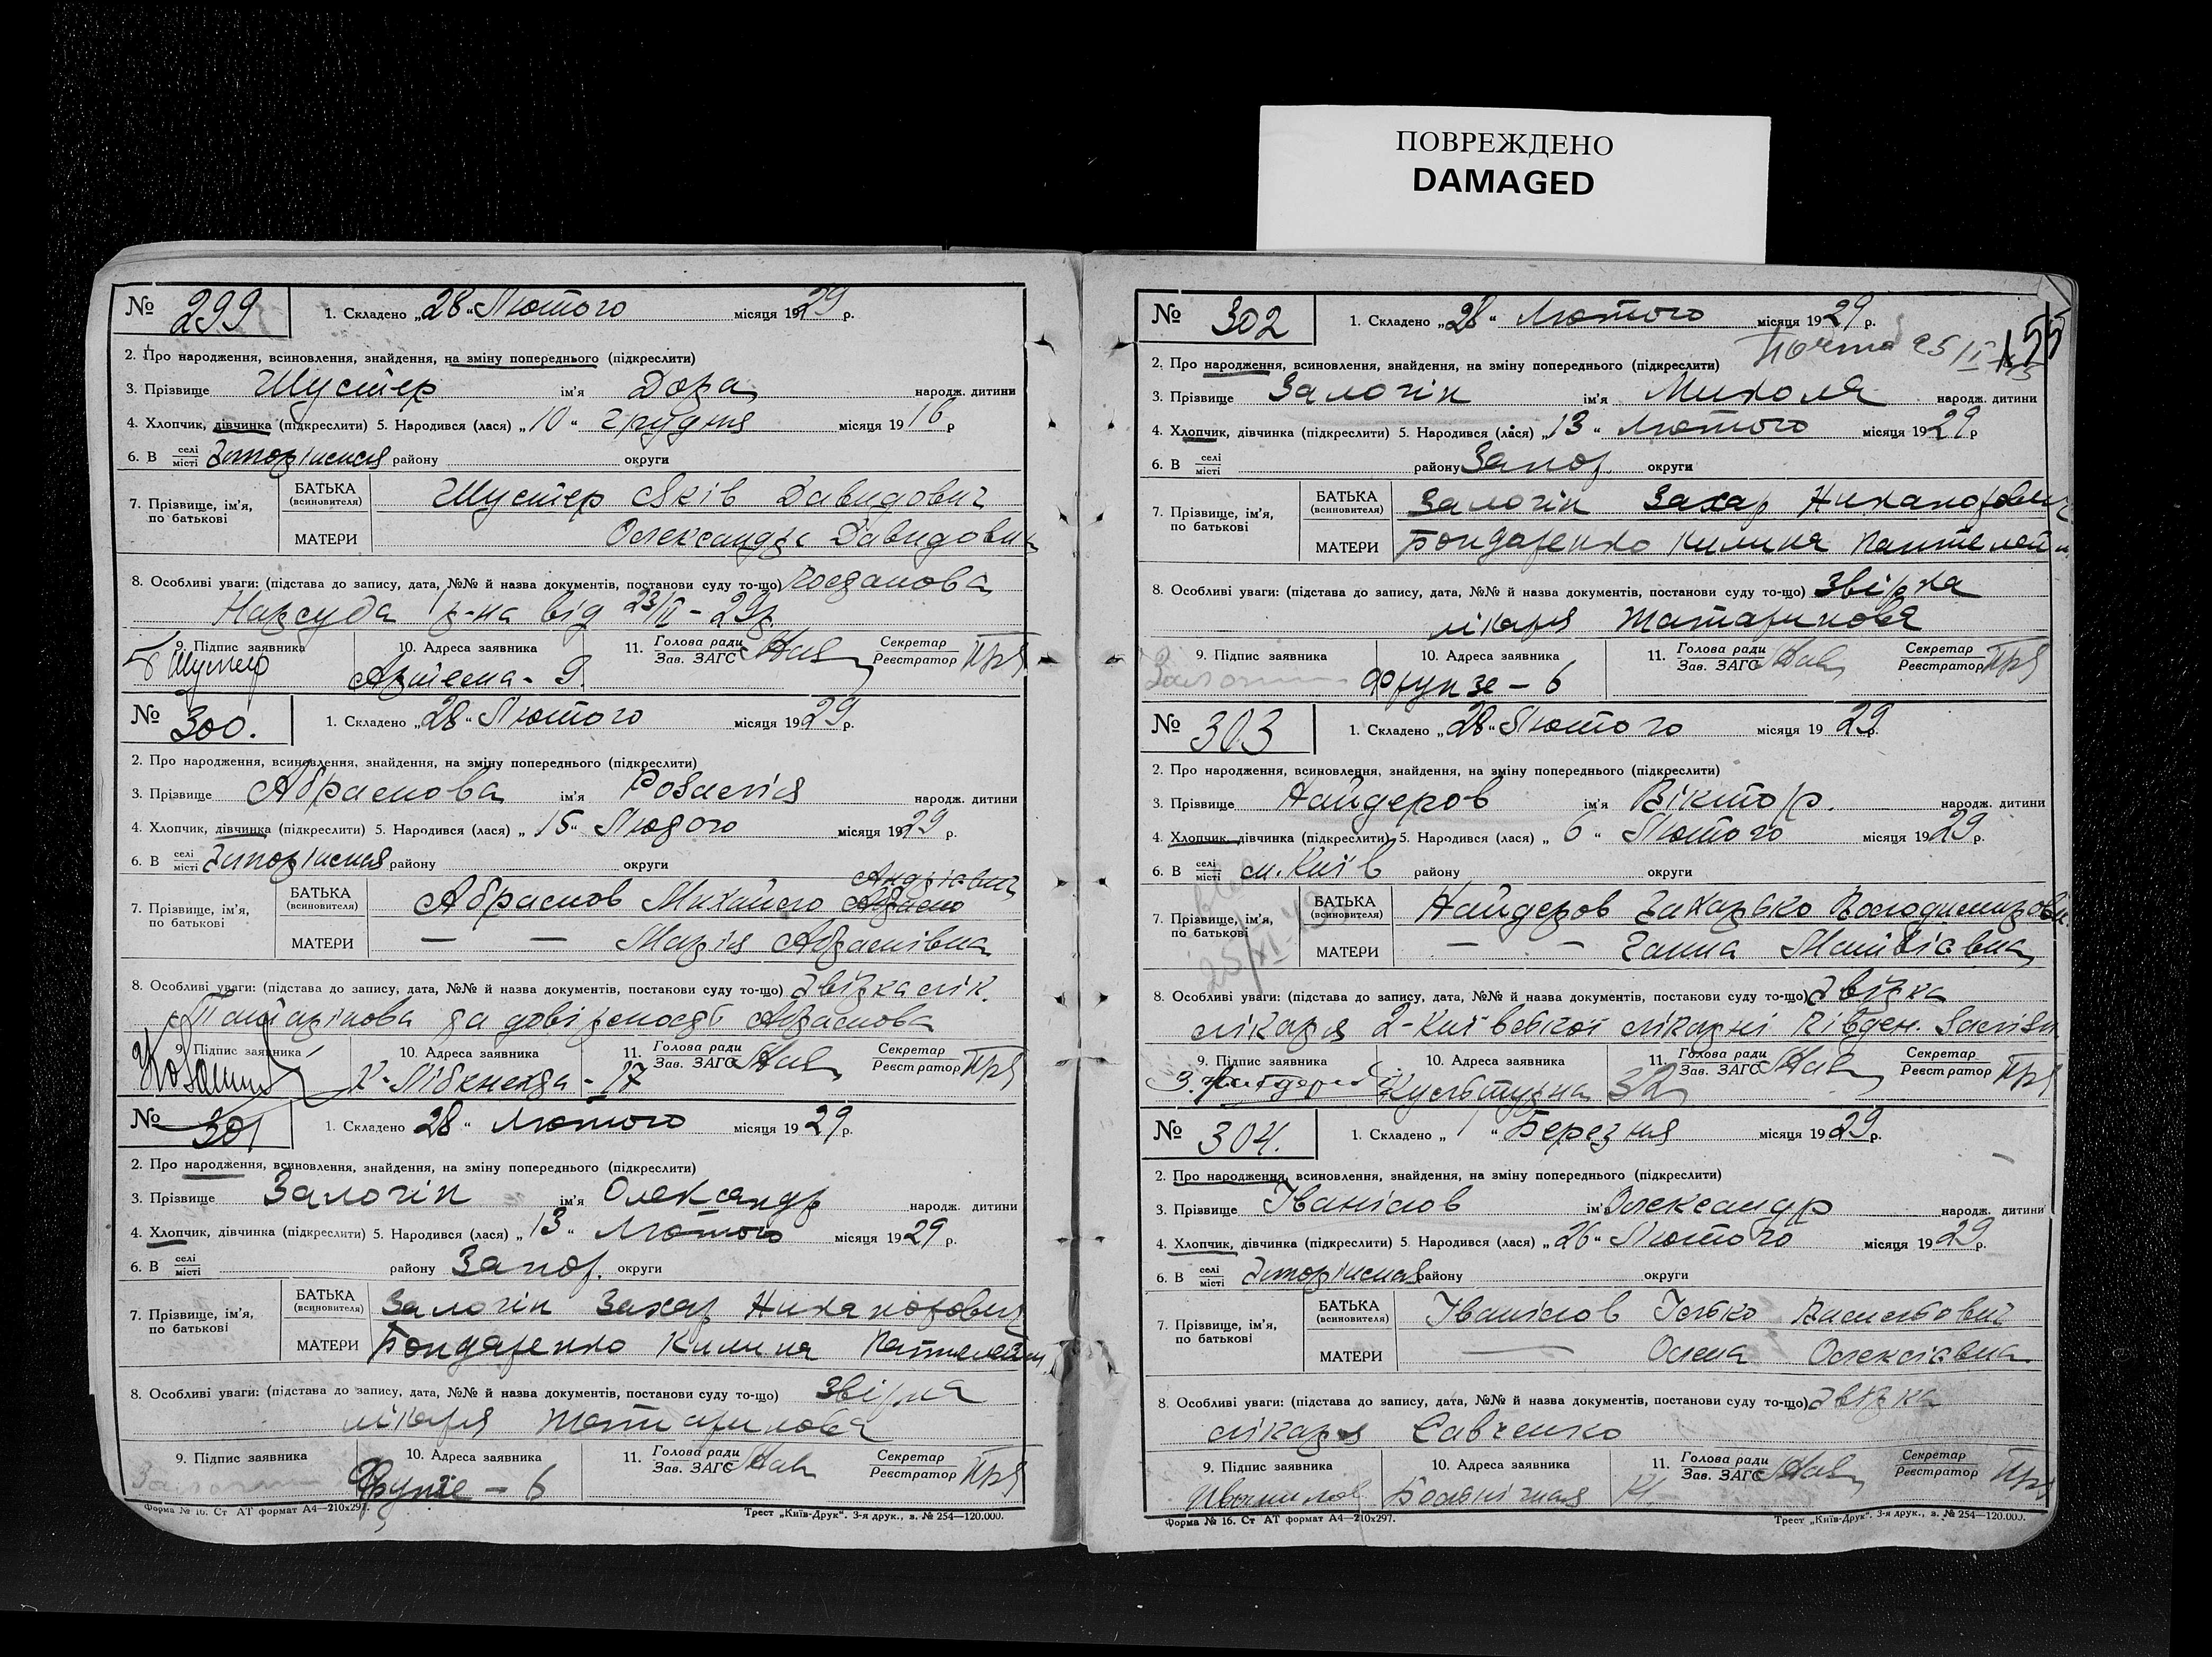 ПОВРЕЖДЕНО
DAMAGED
№ 299
1. Складено „28“ Лютого місяця 1929 р.
2. Про народження, всиновлення, знайдення, на зміну попереднього (підкреслити)
3. Прізвище Шустер ім'я Дора народж. дитини
4. Хлопчик, дівчинка (підкреслити) 5. Народився (лася) „10“ грудня місяця 1916 р
6. В селі місті району округи
7. Прізвище, ім'я, по батькові
БАТЬКА (всиновителя) Шустер Яків Давидович
МАТЕРИ Олександра Давидовн
8. Особливі уваги: (підстава до запису, дата, №№ й назва документів, постанови суду то-що)
Нарсуда р-на від 23/II - 29р.
9. Підпис заявника Шустер
10. Адреса заявника Артема - 9.
11. Голова ради Зав. ЗАГС
Секретар Реєстратор
№ 300.
1. Складено „28“ Лютого місяця 1929 р.
2. Про народження, всиновлення, знайдення, на зміну попереднього (підкреслити)
3. Прізвище Абрамова ім'я Розалія народж. дитини
4. Хлопчик, дівчинка (підкреслити) 5. Народився (лася) „15“ місяця 1929 р.
6. В селі місті району округи
7. Прізвище, ім'я, по батькові
Андрієвич
БАТЬКА (всиновителя) Абрамов Михайло
МАТЕРИ — — Марія Абрамівна
8. Особливі уваги: (підстава до запису, дата, №№ й назва документів, постанови суду то-що) Звірка лік.
Татарінова за
9. Підпис заявника
10. Адреса заявника К-Лібкнехта - 17
11. Голова ради Зав. ЗАГС
Секретар Реєстратор
№ 301
1. Складено 28“ Лютого місяця 1929 р.
2. Про народження, всиновлення, знайдення, на зміну попереднього (підкреслити)
3. Прізвище Залогін ім'я Олександр народж. дитини
4. Хлопчик, дівчинка (підкреслити) 5. Народився (лася) „13“ Лютого місяця 1929 р.
6. В селі місті району Запор. округи
7. Прізвище, ім'я, по батькові
БАТЬКА (всиновителя) Залогін Захар Никанорович
МАТЕРИ Бондаренко Килина Пантелейм
8. Особливі уваги: (підстава до запису, дата, №№ й назва документів, постанови суду то-що) Звірка
лікаря Татаринова
9. Підпис заявника
10. Адреса заявника Фрунзе - 6
11. Голова ради Зав. ЗАГС
Секретар Реєстратор
Форма № 16. Ст АТ формат А4—210х297.
Трест „Київ-Друк“. 3-я друк., з. № 254—120.000.
№ 302
1. Складено „28“ Лютого місяця 1929 р.
2. Про народження, всиновлення, знайдення, на зміну попереднього (підкреслити)
3. Прізвище Залогін ім'я Микола народж. дитини
4. Хлопчик, дівчинка (підкреслити) 5. Народився (лася) „13“ Лютого місяця 1929 р
6. В селі місті району Запор. округи
7. Прізвище, ім'я, по батькові
БАТЬКА (всиновителя) Залогін Захар Никанорович
МАТЕРИ Бондаренко Килина Пантелейм
8. Особливі уваги: (підстава до запису, дата, №№ й назва документів, постанови суду то-що) Звірка
лікаря Татаринова
9. Підпис заявника
10. Адреса заявника Фрунзе - 6
11. Голова ради Зав. ЗАГС
Секретар Реєстратор
№ 303
1. Складено „28“ Лютого місяця 1929 р.
2. Про народження, всиновлення, знайдення, на зміну попереднього (підкреслити)
3. Прізвище Найдеров ім'я Віктор. народж. дитини
4. Хлопчик, дівчинка (підкреслити) 5. Народився (лася) „6“ Лютого місяця 1929 р.
6. В селі місті м. Київ району округи
7. Прізвище, ім'я, по батькові
БАТЬКА (всиновителя) Найдеров Захарько Володимирови
МАТЕРИ — — Ганна Матвіівна
8. Особливі уваги: (підстава до запису, дата, №№ й назва документів, постанови суду то-що) Звірка
лікаря 2-Київської лікарні Півден. Залізн
9. Підпис заявника
10. Адреса заявника Культурна 32
11. Голова ради Зав. ЗАГС
Секретар Реєстратор
№ 304.
1. Складено „1“ Березня місяця 1929 р.
2. Про народження, всиновлення, знайдення, на зміну попереднього (підкреслити)
3. Прізвище Іванілов ім'я Олександр народж. дитини
4. Хлопчик, дівчинка (підкреслити) 5. Народився (лася) „26“ Лютого місяця 1929 р.
6. В селі місті району округи
7. Прізвище, ім'я, по батькові
БАТЬКА (всиновителя) Іванілов Ілько
МАТЕРИ — Олена Олексіівна
8. Особливі уваги: (підстава до запису, дата, №№ й назва документів, постанови суду то-що) Звірка
лікаря Савченко
9. Підпис заявника Иванилов
10. Адреса заявника
11. Голова ради Зав. ЗАГС
Секретар Реєстратор
Форма № 16. Ст АТ формат А4—210х297.
Трест „Київ-Друк“. 3-я друк., з. № 254—120.000.